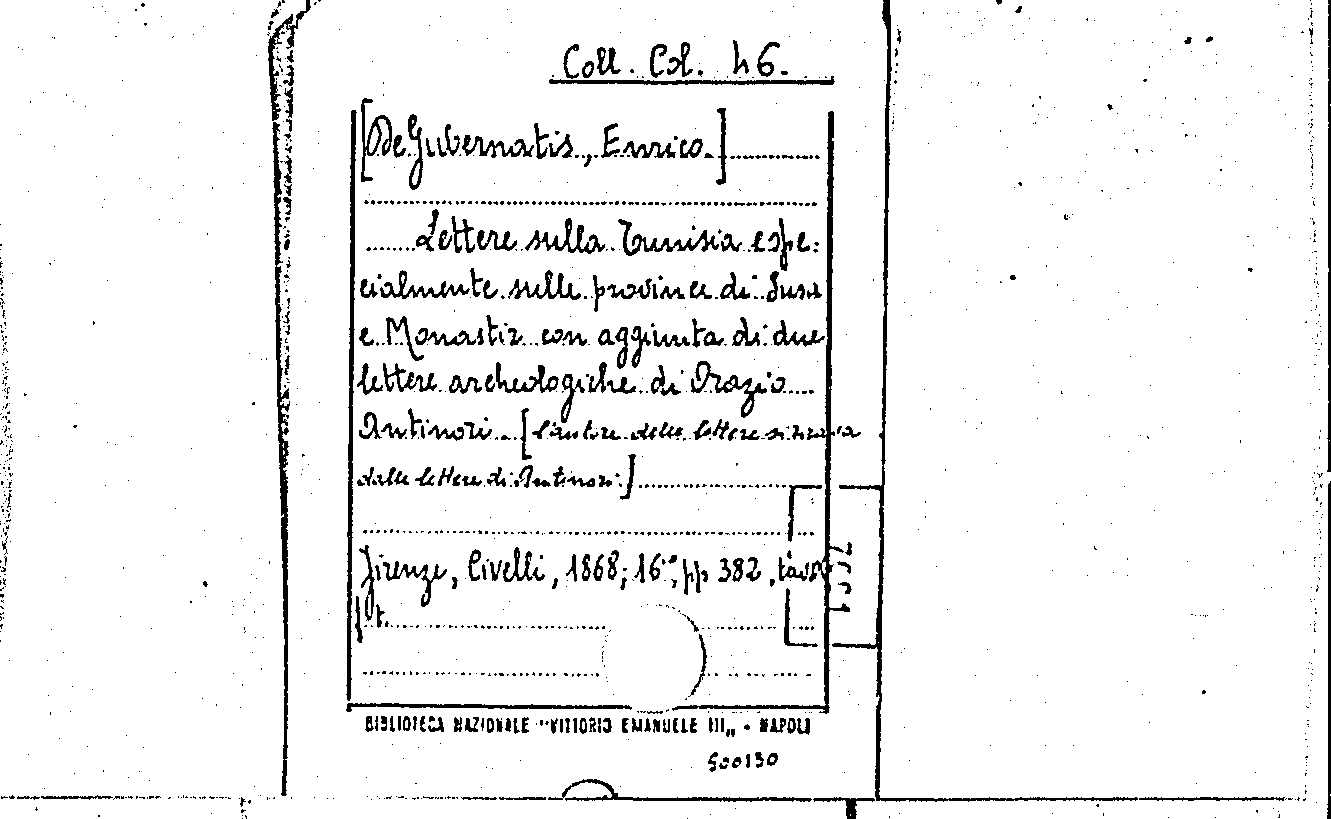 Coll. Col. 46.
[De Gubernatis, Enrico.]
Lettere sulla Tunisia espe:
cialmente sulle province di Susa
e Monastir con aggiunta di due
lettere archeologiche di Orazio
Antinori. [l'autore delle lettere si ricava
dalle lettere di Antinori.]
Firenze, Civelli, 1868; 16°, pp 382, tav.
t.
BIBLIOTECA NAZIONALE "VITTORIO EMANUELE III„ - NAPOLI
500130